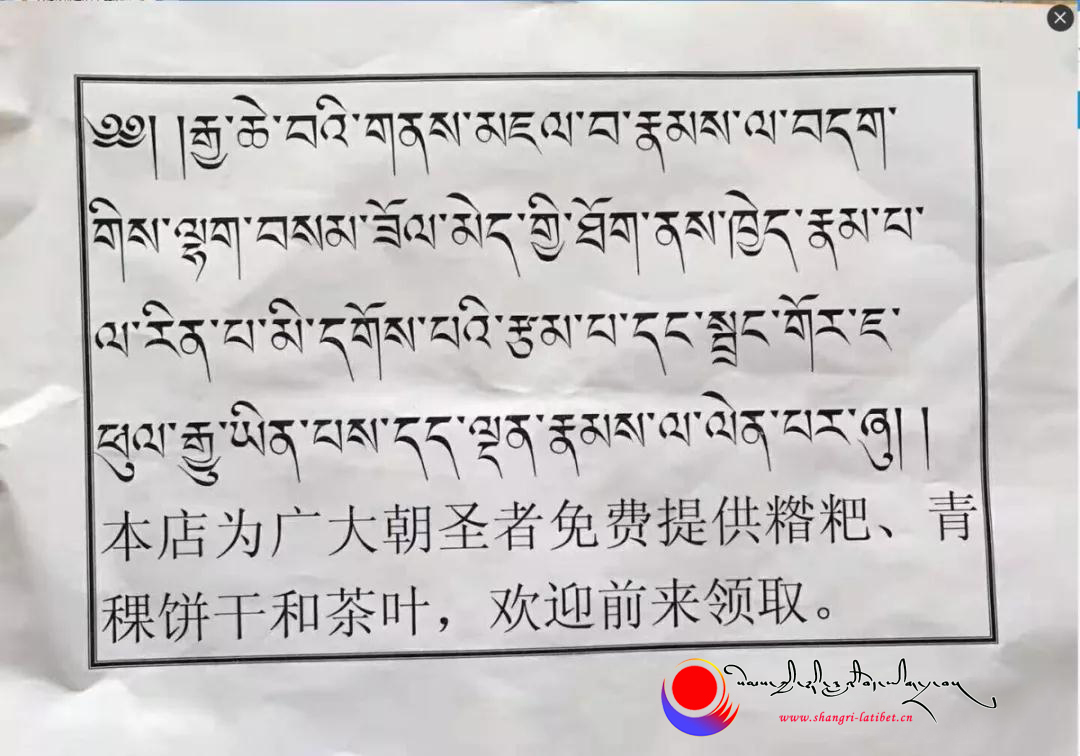 ༄༅། །རྒྱ་ཆེ་བའི་གནས་མཇལ་བ་རྣམས་ལ་བདག་
གིས་ལྷག་བསམ་ཟོལ་མེད་ཀྱི་ཐོག་ནས་ཁྱེད་རྣམ་པ་
ལ་རིན་པ་མི་དགོས་པའི་རྩམ་པ་དང་སྦྲང་གོར་ཇ་
ཕུལ་རྒྱུ་ཡིན་པས་དད་ལྡན་རྣམས་ལ་ལེན་པར་ཞུ། །
本店为广大朝圣者免费提供糌粑、青
稞饼干和茶叶，欢迎前来领取。
www.shangri-latibet.cn